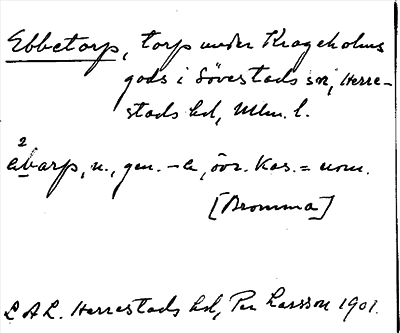 Ebbetorp, torp under Krageholms
gods i Sövestads sn, Herre-
stads hd, Mlm. l.
2
ábarp, n., gen. -a, övr. kas. = nom.
[Bromma]
L A L. Herrestads hd, Per Larsson 1901.